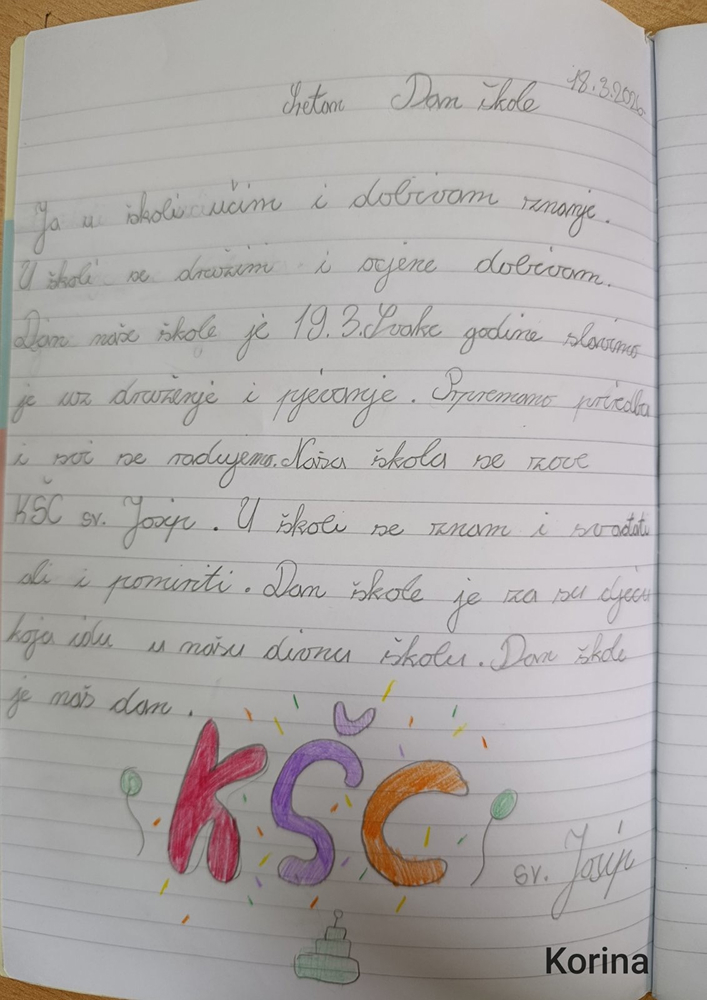 Sretan Dan škole 18.3.2026.
Ja u školi učim i dobivam znanje.
U školi se družim i ocjene dobivam.
Dan naše škole je 19.3. Svake godine slavimo
je uz druženje i pjevanje. Pripremamo priredbu
i svi se radujemo. Naša škola se zove
KŠC sv. Josip. U školi se znam i svađati
ali i pomiriti. Dan škole je za svu djecu
koja idu u našu divnu školu. Dan škole
je naš dan.
KŠC
sv. Josip
Korina